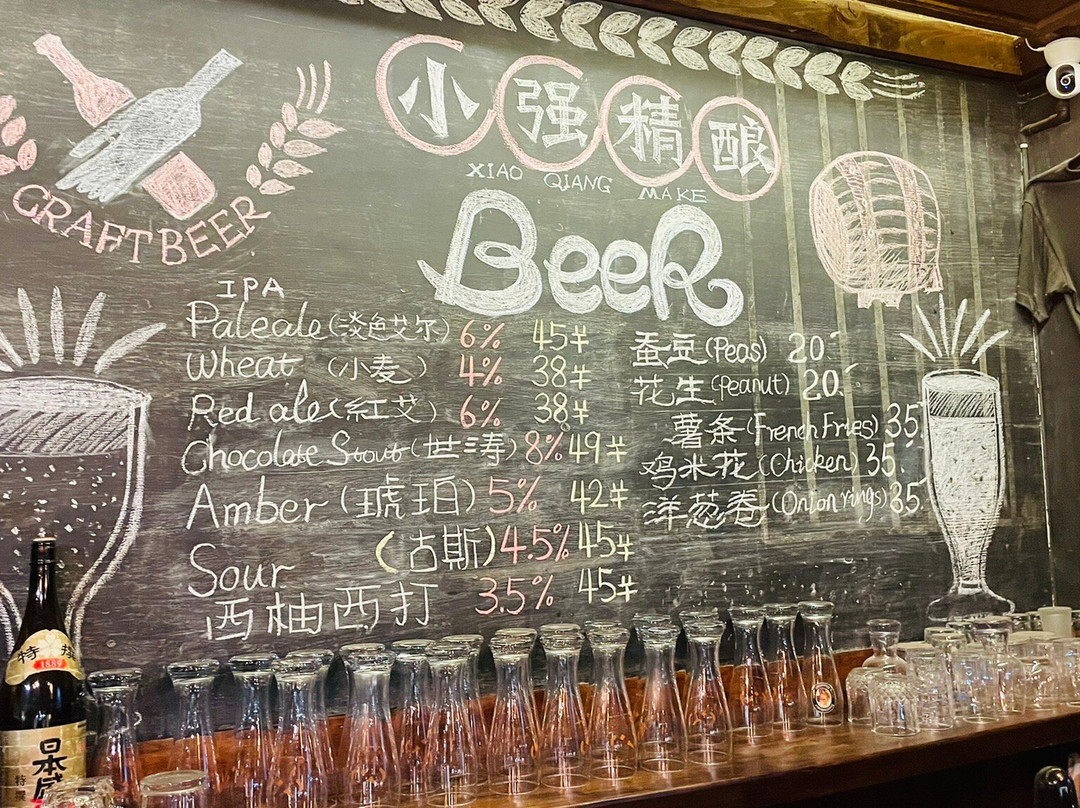 小强精酿
XIAO QIANG MAKE
BeeR
CRAFT BEER
IPA
Pale ale (淡色艾尔) 6% 45¥
Wheat (小麦) 4% 38¥
Red ale (紅艾) 6% 38¥
Chocolate Stout (世涛) 8% 49¥
Amber (琥珀) 5% 42¥
Sour (古斯) 4.5% 45¥
西柚西打 3.5% 45¥
蚕豆 (Peas) 20.
花生 (Peanut) 20.
薯条 (French Fries) 35.
鸡米花 (Chicken) 35.
洋葱卷 (Onion rings) 35.
特撰
1889
日本盛
特撰